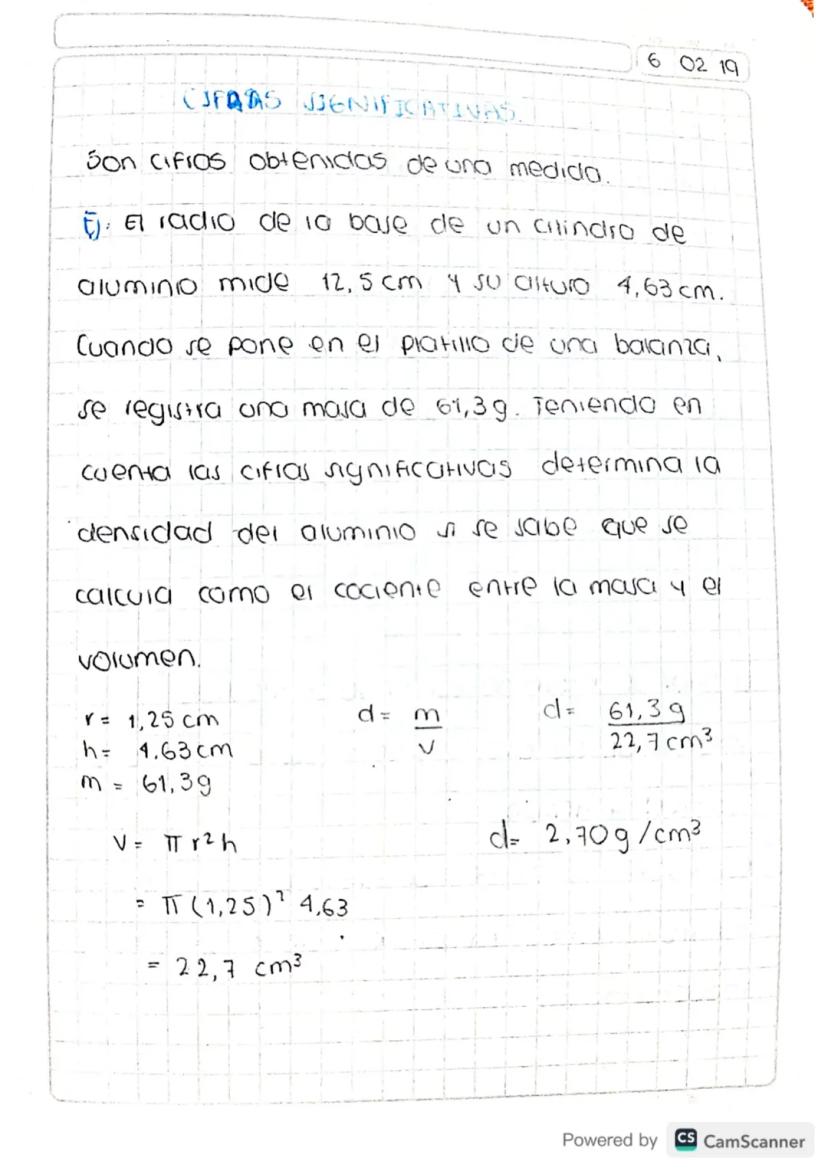 6 02 19
CIFRAS SIGNIFICATIVAS.
Son cifras obtenidas de una medida.
Ej: El radio de la base de un cilindro de
aluminio mide 12,5 cm y su altura 4,63 cm.
Cuando se pone en el platillo de una balanza,
se registra una masa de 61,3 g. Teniendo en
cuenta las cifras significativas determina la
densidad del aluminio si se sabe que se
calcula como el cociente entre la masa y el
volumen.
r = 1,25 cm
h = 4.63 cm
m = 61,3g
d = m/v
d = 61,3 g / 22,7 cm³
V = π r² h
= π (1,25)² 4,63
= 22,7 cm³
d = 2,70 g/cm³
Powered by CS CamScanner